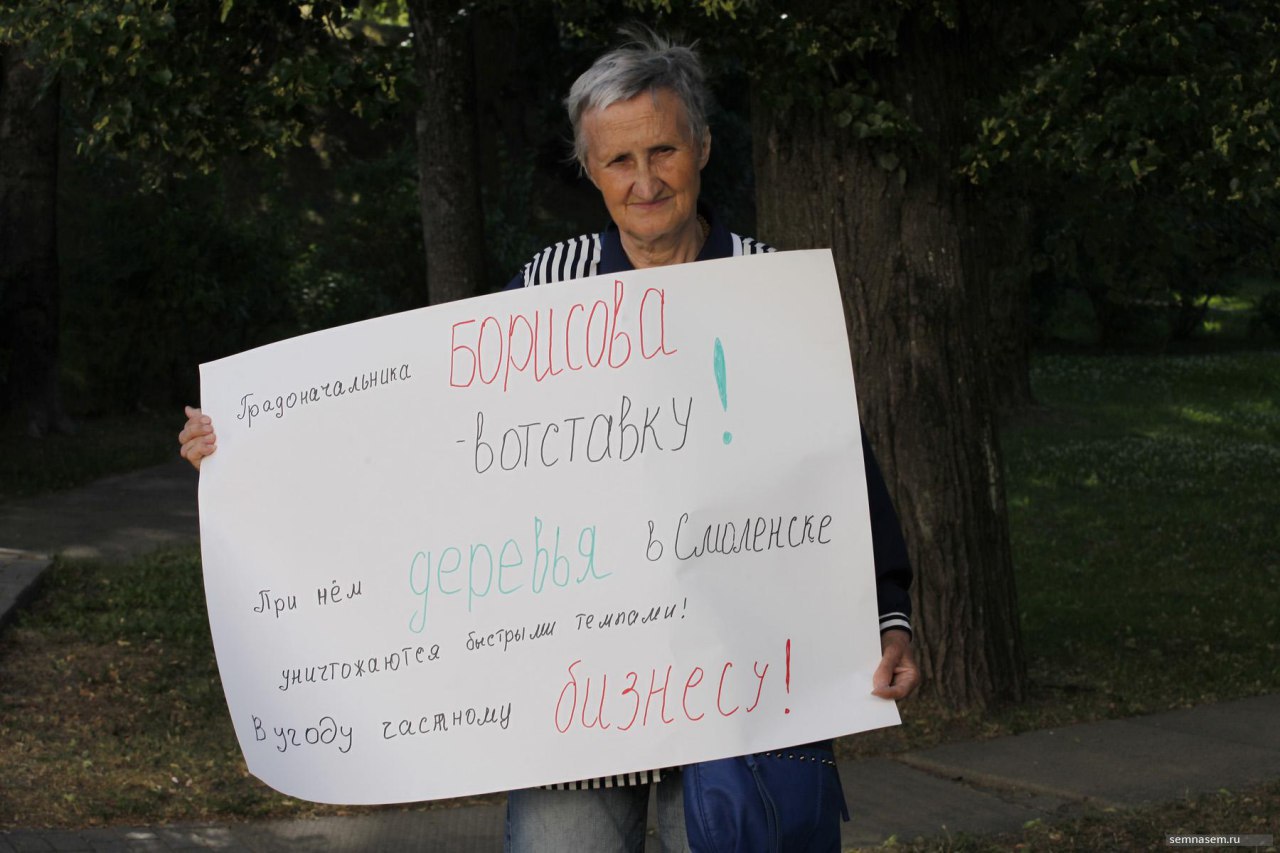 Градоначальника БОРИСОВА
-вотставку!
При нём деревья в Смоленске
уничтожаются быстрыми темпами!
В угоду частному бизнесу!
semnasem.ru